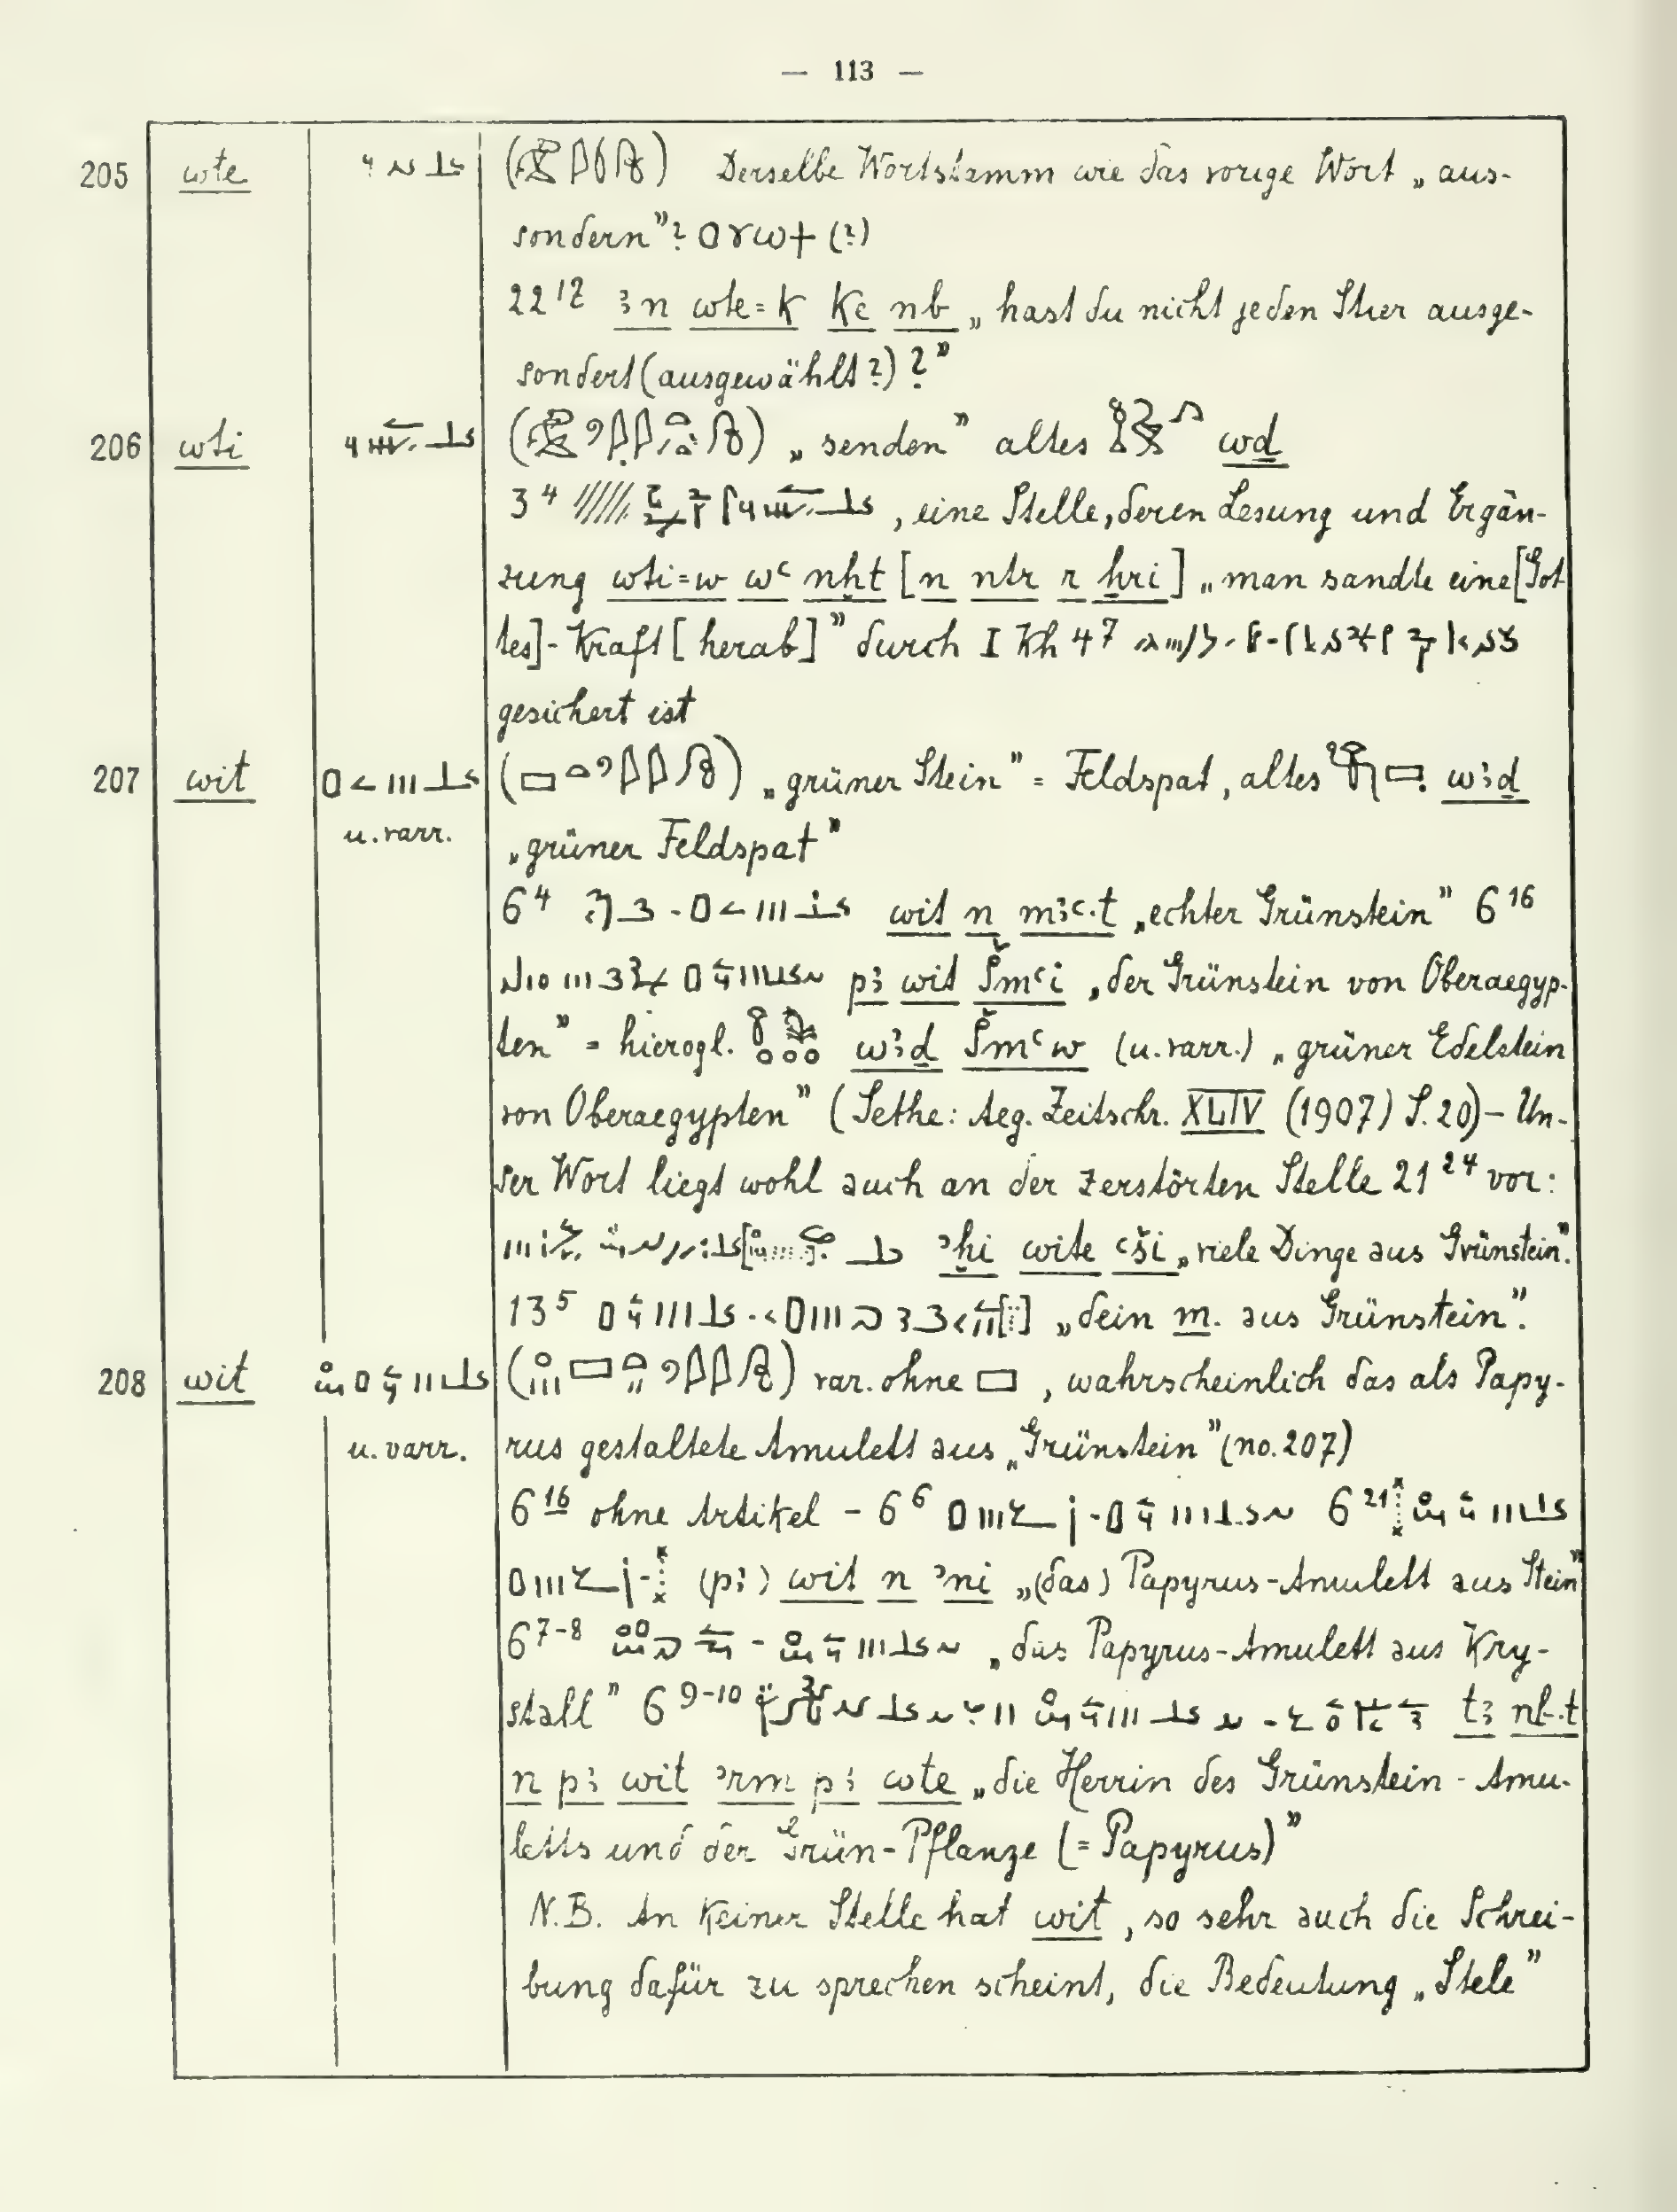 — 113 —
205 wte ( ) Derselbe Wortstamm wie das vorige Wort „aus-
sondern"? ⲟⲩⲱϯ (?)
22 12 ꜣn wte=k kꜥ nb „hast du nicht jeden Stier ausge-
sondert (ausgewählt?)?"
206 wti ( ) „senden" altes wḏ
3 4 , eine Stelle, deren Lesung und Ergän-
zung wti=w wꜥ nḫt [n ntr r ẖri] „man sandte eine [Got-
tes]-Kraft [herab]" durch I Kh 4 7
gesichert ist
207 wit ( ) „grüner Stein" = Feldspat, altes wꜣḏ
u. varr. „grüner Feldspat"
6 4 wit n mꜣꜥ.t „echter Grünstein" 6 16
pꜣ wit Šmꜥi „der Grünstein von Oberaegyp-
ten" = hierogl. wꜣḏ Šmꜥw (u. varr.) „grüner Edelstein
von Oberaegypten" (Sethe: Aeg. Zeitschr. XLIV (1907) S. 20) – Un-
ser Wort liegt wohl auch an der zerstörten Stelle 21 24 vor:
ʾḫi wite ꜥši „viele Dinge aus Grünstein".
13 5 „dein m. aus Grünstein".
208 wit ( ) var. ohne , wahrscheinlich das als Papy-
u. varr. rus gestaltete Amulett aus „Grünstein" (no. 207)
6 16 ohne Artikel – 6 6 6 21
(pꜣ) wit n ʾni „(das) Papyrus-Amulett aus Stein"
6 7-8 „das Papyrus-Amulett aus Kry-
stall" 6 9-10 tꜣ nb.t
n pꜣ wit ʾrm pꜣ wte „die Herrin des Grünstein-Amu-
letts und der Grün-Pflanze (= Papyrus)"
N.B. An keiner Stelle hat wit, so sehr auch die Schrei-
bung dafür zu sprechen scheint, die Bedeutung „Stele"